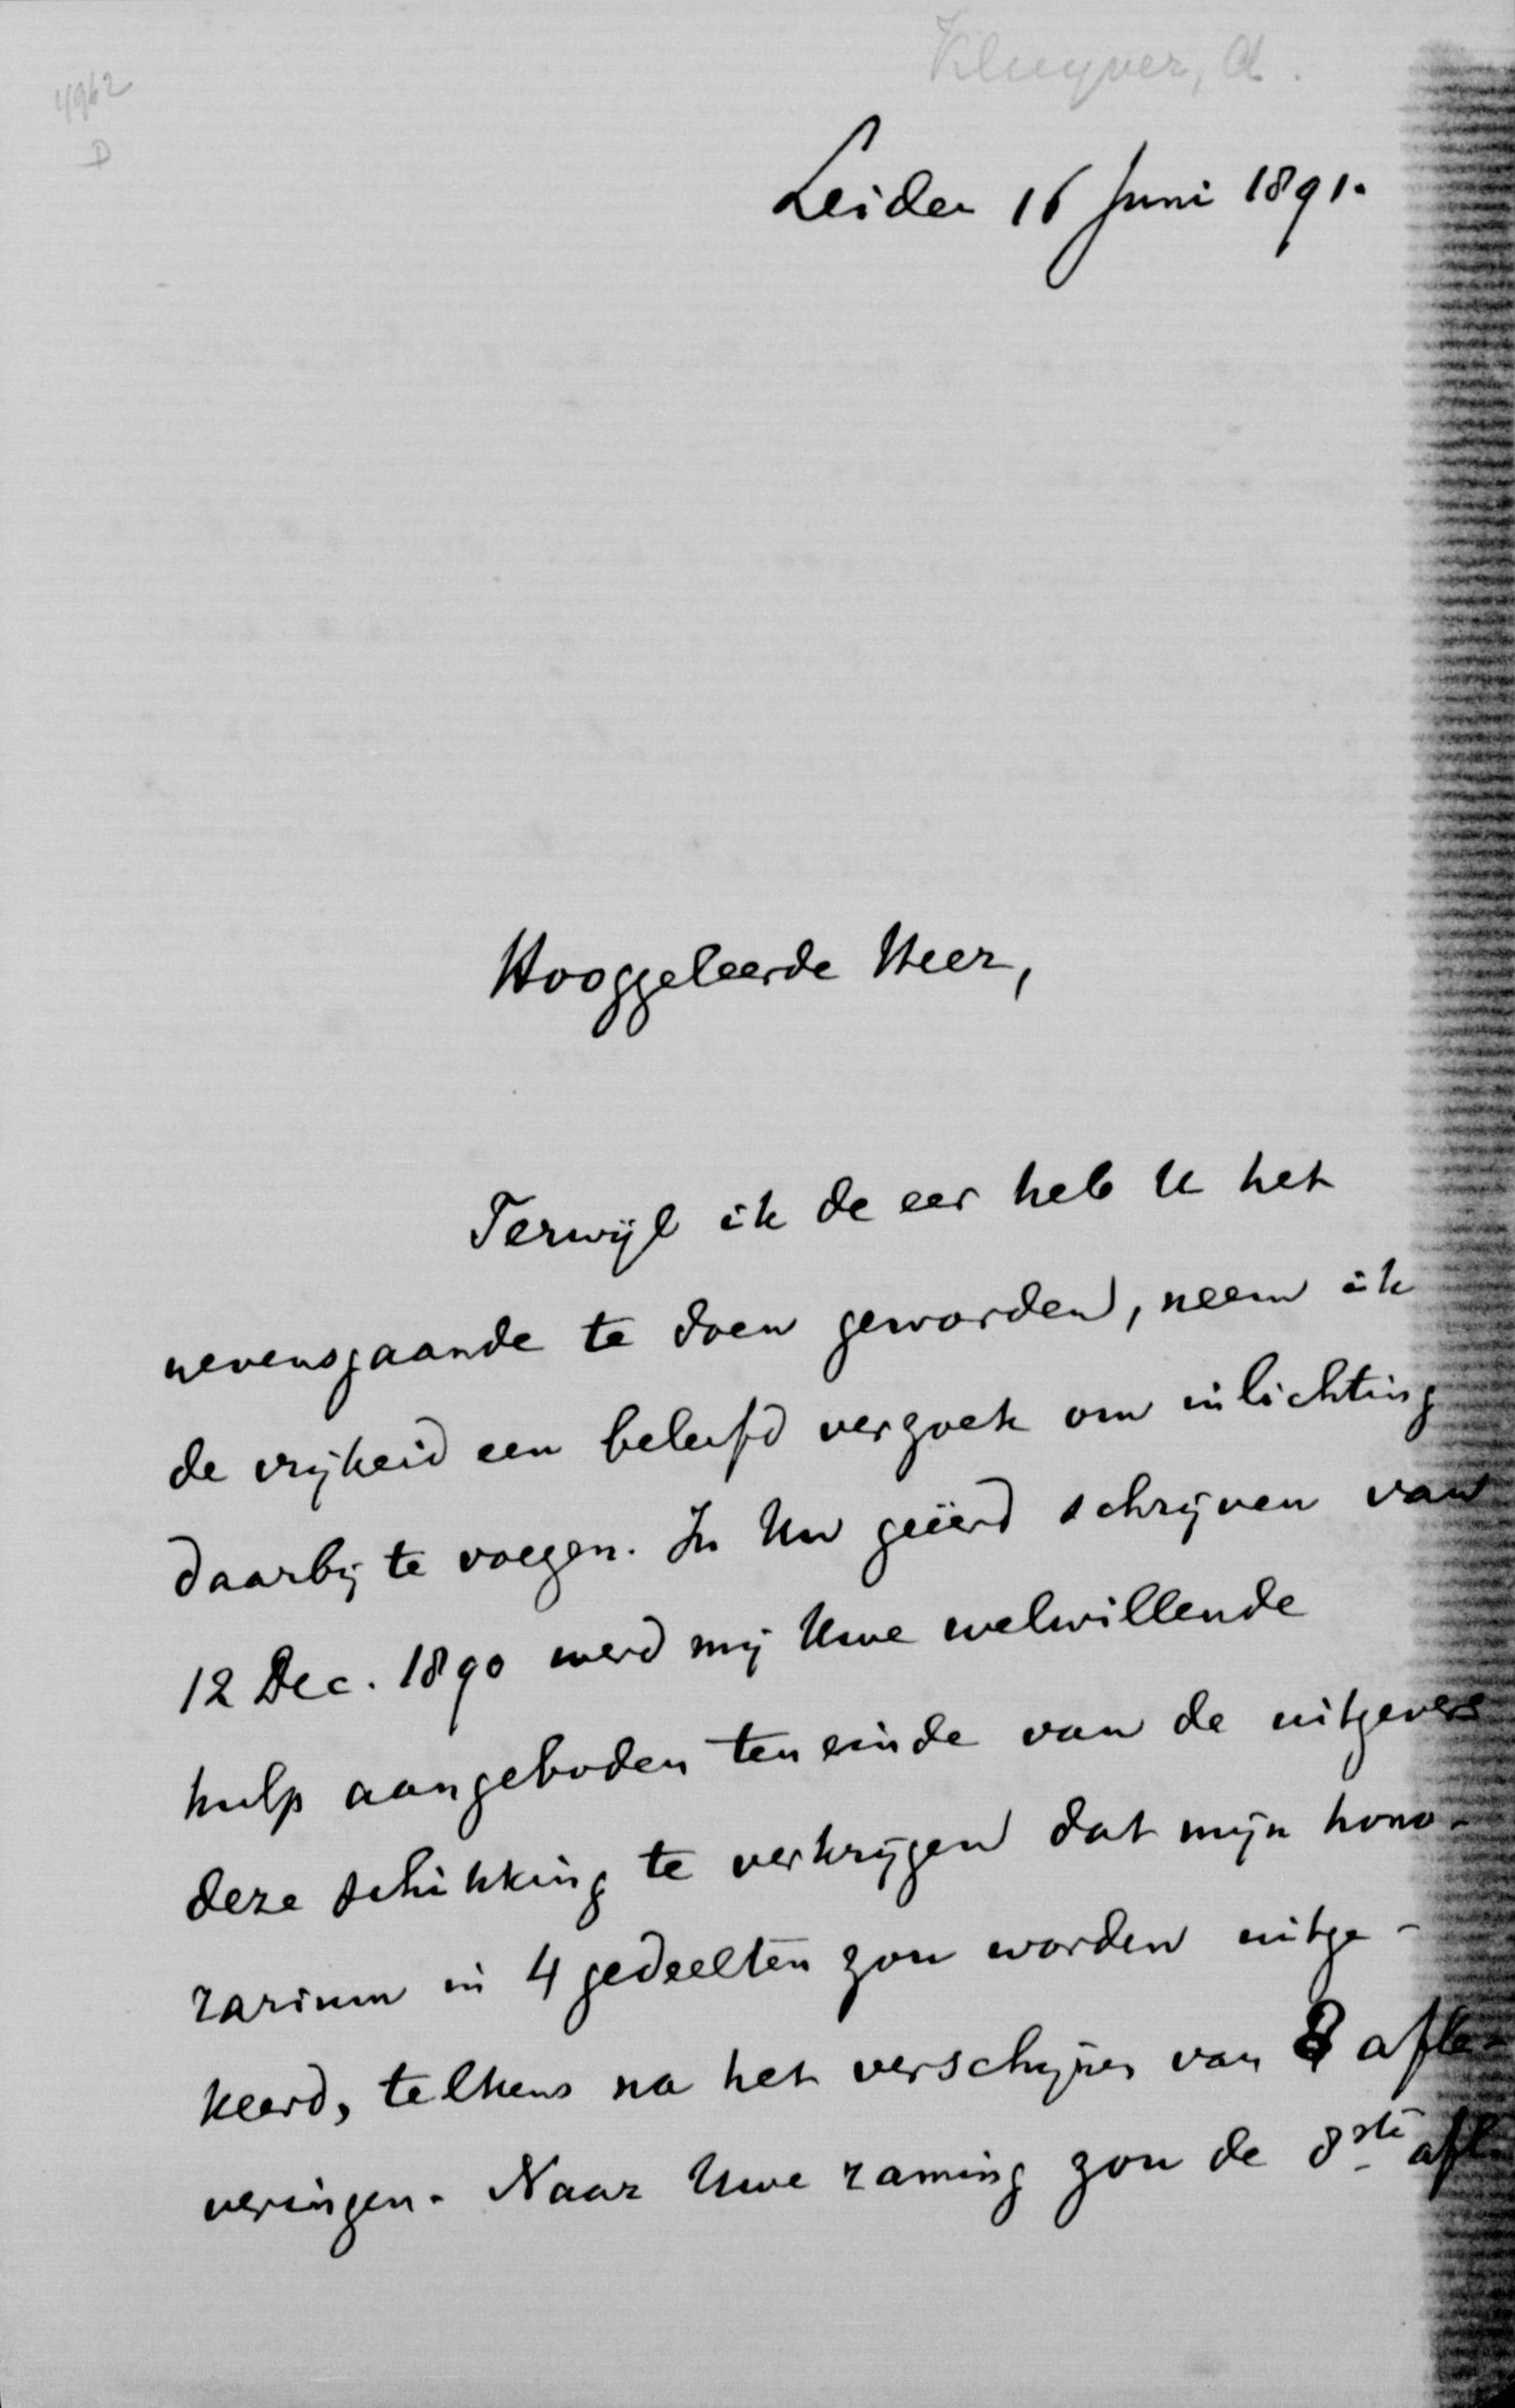 Kluyver, A.
4962
D
Leiden 16 Juni 1891.
Hooggeleerde Heer,
Terwijl ik de eer heb U het
nevensgaande te doen geworden, neem ik
de vrijheid een beleefd verzoek om inlichting
daarbij te voegen. In Uw geëerd schrijven van
12 Dec. 1890 werd mij Uwe welwillende
hulp aangeboden ten einde van de uitgevers
deze schikking te verkrijgen dat mijn hono-
rarium in 4 gedeelten zou worden uitge-
keerd, telkens na het verschijnen van 8 afle-
veringen. Naar Uwe raming zou de 8ste afl.